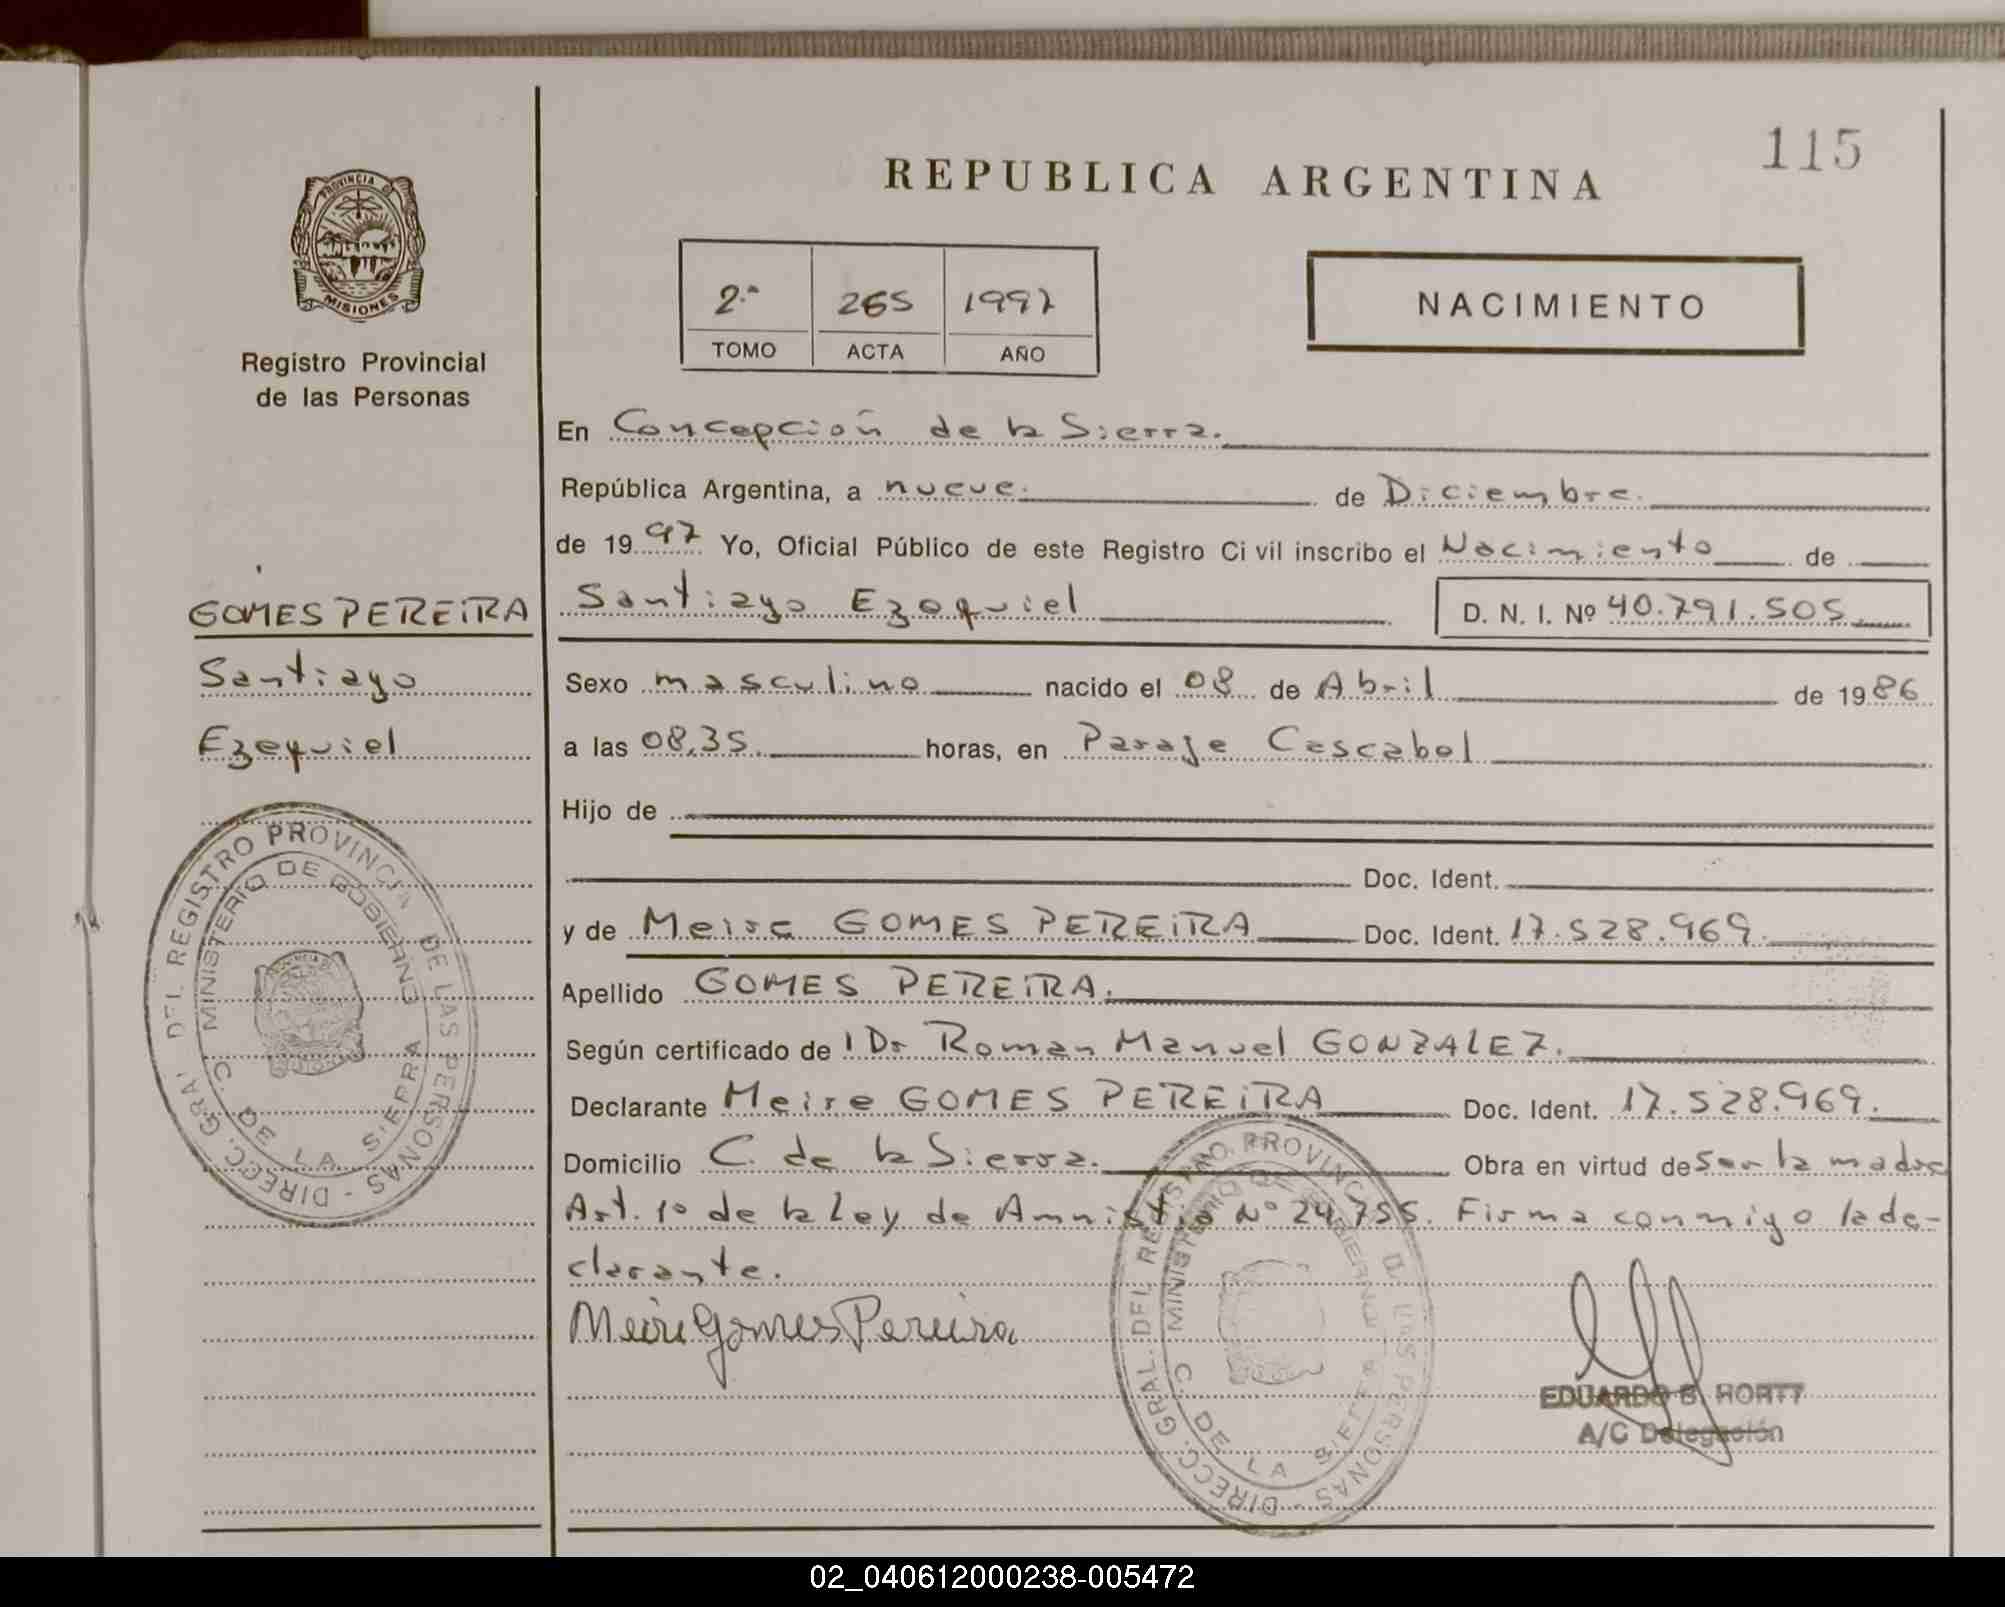 115
REPUBLICA ARGENTINA
PROVINCIA DE
MISIONES
Registro Provincial
de las Personas
2ª 265 1997
TOMO ACTA AÑO
NACIMIENTO
En Concepción de la Sierra.
República Argentina, a nueve. de Diciembre.
de 1997 Yo, Oficial Público de este Registro Civil inscribo el Nacimiento de
GOMES PEREIRA
Santiago
Ezequiel
Santiago Ezequiel D. N. I. Nº 40.791.505
Sexo masculino nacido el 08 de Abril de 1986
a las 08,35 horas, en Paraje Cascabel
Hijo de
Doc. Ident.
y de Meire GOMES PEREIRA Doc. Ident. 17.528.969.
Apellido GOMES PEREIRA.
Según certificado de l Dr Roman Manuel GONZALEZ.
Declarante Meire GOMES PEREIRA Doc. Ident. 17.528.969.
Domicilio C. de la Sierra. Obra en virtud de Ser la madre
Art. 1º de la Ley de Amnistia Nº 24.755. Firma conmigo la de-
clarante.
Meire Gomes Pereira
EDUARDO B. HORTT
A/C Delegación
DIRECC. GRAL. DEL REGISTRO PROVINCIAL DE LAS PERSONAS
MINISTERIO DE GOBIERNO
C. DE LA SIERRA
DIRECC. GRAL. DEL REGISTRO PROVINCIAL DE LAS PERSONAS
MINISTERIO DE GOBIERNO
C. DE LA SIERRA
02_040612000238-005472